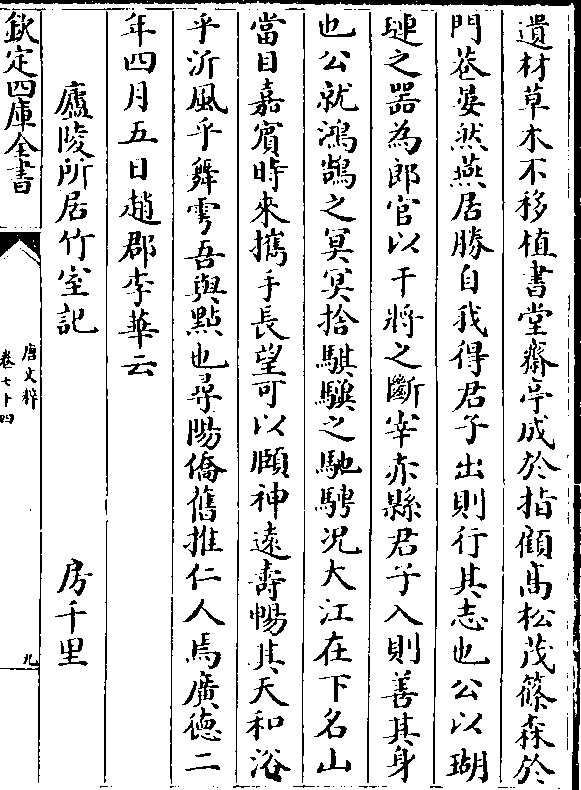 遺材草木不移植書堂齋亭成於指顧髙松茂篠森於
門菴晏然燕居勝自我得君子出則行其志也公以瑚
璉之器為郎官以干將之斷宰赤縣君子入則善其身
也公就鴻鵠之冥冥捨騏驥之馳騁况大江在下名山
當目嘉賓時來攜手長望可以頤神遠壽暢其天和浴
乎沂風乎舞雩吾與㸃也尋陽僑舊推仁人焉廣德二
年四月五日趙郡李華云
廬陵所居竹室記 房千里
欽定四庫全書
唐文粹
卷七十四
九